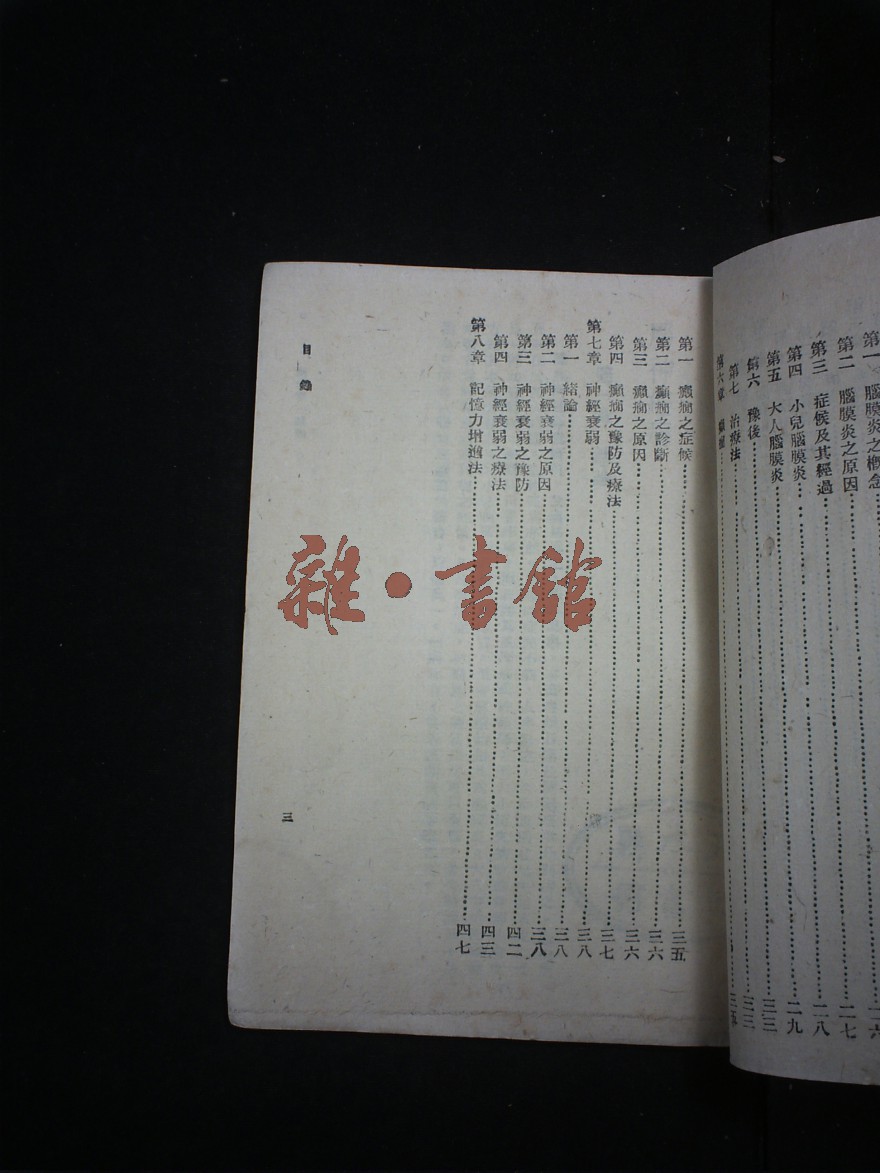 第一 腦膜炎之概念……二六
第二 腦膜炎之原因……二七
第三 症候及其經過……二八
第四 小兒腦膜炎……二九
第五 大人腦膜炎……三三
第六 豫後……三三
第七 治療法
第六章
第一 癲癇之症候……三五
第二 癲癇之診斷……三六
第三 癲癇之原因……三六
第四 癲癇之豫防及療法……三七
第七章 神經衰弱……三八
第一 緒論……三八
第二 神經衰弱之原因……三八
第三 神經衰弱之豫防……四二
第四 神經衰弱之療法……四三
第八章 記憶力增進法……四七
目錄
三
雜·書館